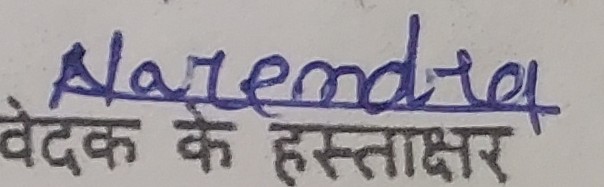 Narendra
वेदक के हस्ताक्षर